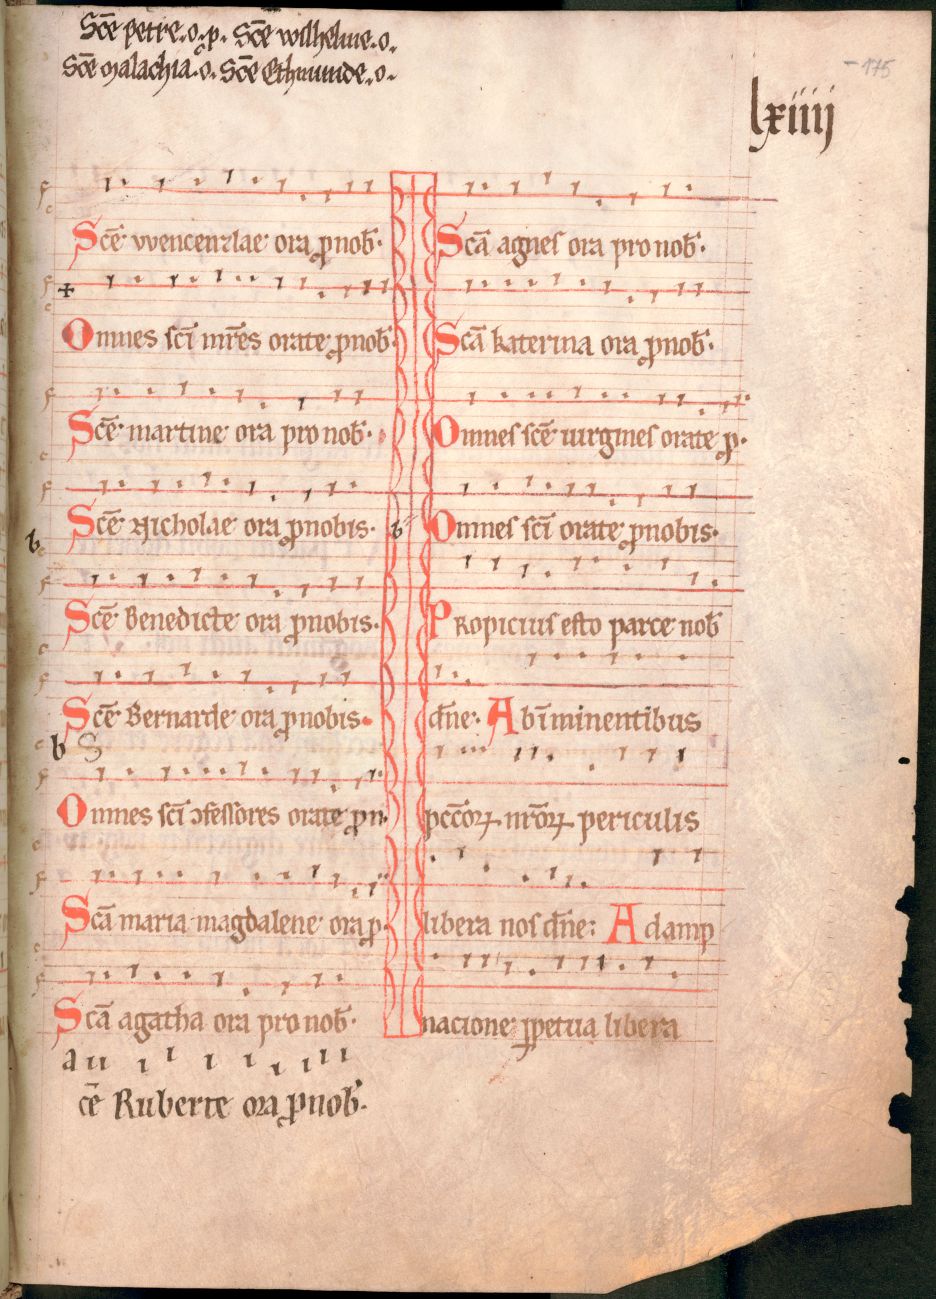 Sc̄e petre .o.p. Sc̄e wilhelme .o.
Sc̄e Malachia .o. Sc̄e Ethmunde .o.
-175
lxiiij
Sc̄e wencezlae ora ꝓnob̄.
Omnes sc̄i mr̄es orate ꝓnob̄
Sc̄e martine ora pro nob̄.
Sc̄e Nicholae ora ꝓnobis.
b
Sc̄e Benedicte ora ꝓnobis.
Sc̄e Bernarde ora ꝓnobis.
b S
Omnes sc̄i ↄfessores orate ꝓn.
Sc̄a maria magdalene ora ꝓ.
Sc̄a agatha ora pro nob̄.
c̄e Ruberte ora ꝓnob̄.
Sc̄a agnes ora pro nob̄.
Sc̄a katerina ora ꝓnob̄.
Omnes sc̄e uirgines orate ꝓ.
b Omnes sc̄i orate ꝓnobis.
Propicius esto parce nob̄
dn̄e. Ab īminentibus
pcc̄oꝝ nr̄oꝝ periculis
libera nos dn̄e: A damp
nacione ꝑpetua libera